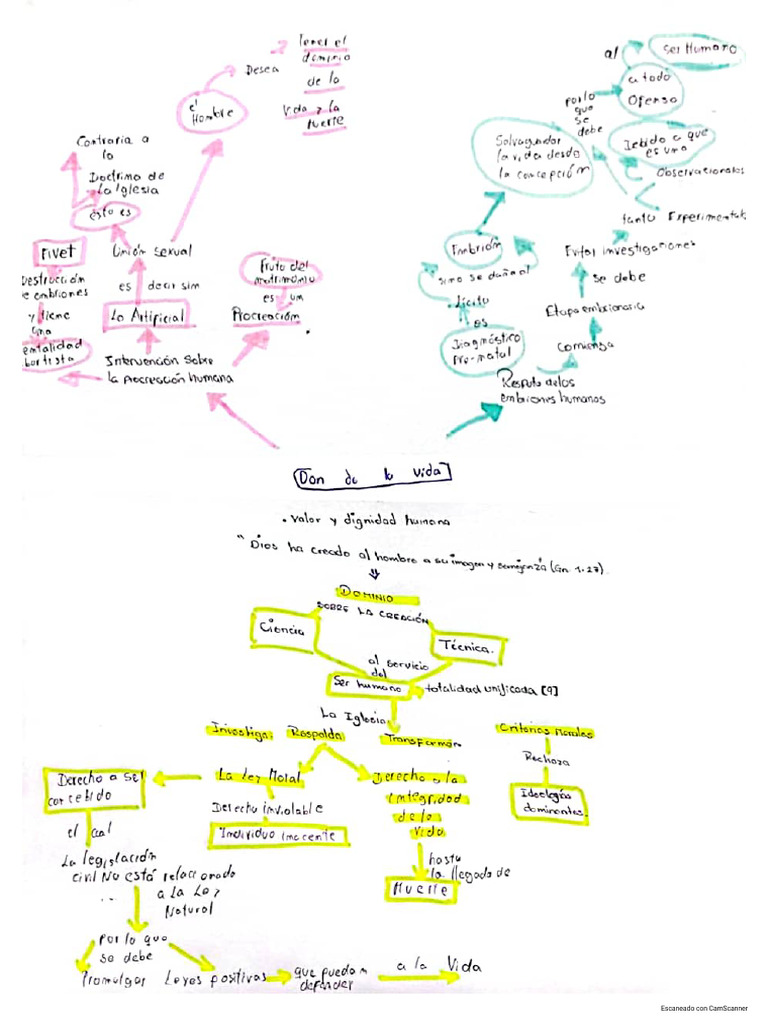 Tener el
dominio
de la
Vida y la
Muerte
Desea
el
Hombre
Contraria a
la
Doctrina de
La Iglesia
esto es
FIVET
Unión sexual
Destrucción
e embriones
y tiene
una
entalidad
bortista
es decir sim
Lo Artificial
Fruto del
matrimonio
es un
Procreación
Intervención sobre
la procreación humana
al
Ser Humano
a todo
Ofensa
por lo
que
se
debe
Salvaguardar
la vida desde
la concepción
Debido a que
es una
Observacionales
tanto Experimentales
Embrión
Evitar investigaciones
sino se daña al
se debe
Licito
Etapa embrionaria
es
Diagnóstico
Pre-natal
Comienza
Respeto de los
embriones humanos
Don de la Vida
• Valor y dignidad humana
" Dios ha creado al hombre a su imagen y semejanza" (Gn. 1.27).
DOMINIO
SOBRE LA CREACIÓN
Ciencia
Técnica.
al servicio
del
Ser humano
totalidad unificada [9]
La Iglesia
Investiga: Respalda
Transforman
Criterios Morales
Rechaza
Ideologías
dominantes.
Derecho a ser
concebido
La Ley Moral
Derecho a la
integridad
de la
vida
Derecho inviolable
Individuo inocente
el cual
La legislación
civil No está relacionado
a La Ley
Natural
...
hasta
la llegada de
Muerte
Por lo que
se debe
Promulgar
Leyes positivas
que puedan
defender
a la Vida
Escaneado con CamScanner